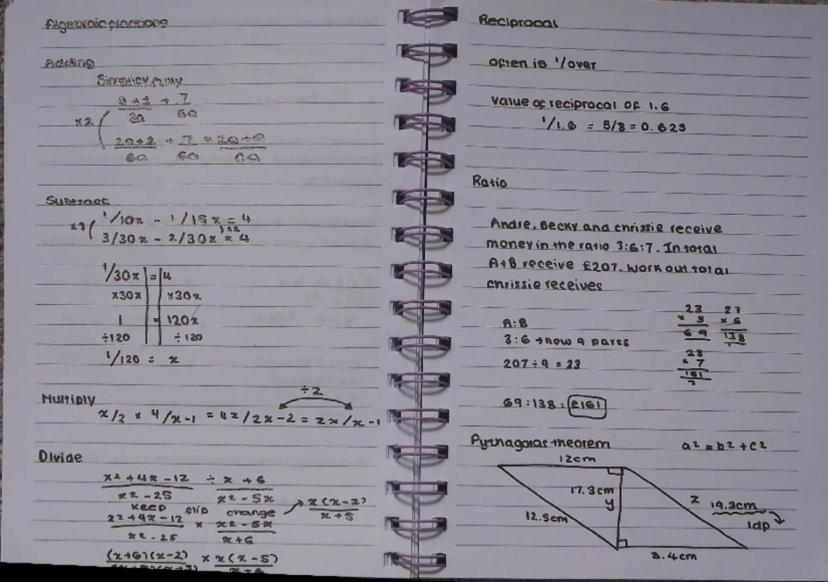 Algebraic fractions
Adding
Simplify fully
a+1 + 7
3a 6a
x2
2a+2 + 7 = 2a+9
6a 6a 6a
Subtract
1/10x - 1/15x = 4
x3 ( ) x2
3/30x - 2/30x = 4
1/30x = 4
x30x x30x
1 = 120x
÷120 ÷120
1/120 = x
Multiply
÷2
x/2 x 4/x-1 = 4x/2x-2 = 2x/x-1
Divide
x2+4x-12 ÷ x+6
x2-25 x2-5x
Keep flip change
x2+4x-12 x x2-5x
x2-25 x+6
x(x-2)
x+5
(x+6)(x-2) x x(x-5)
Reciprocal
often is 1/over
value of reciprocal of 1.6
1/1.6 = 5/8 = 0.625
Ratio
Andre, Becky and chrissie receive
money in the ratio 3:6:7. In total
A+B receive £207. Work out total
chrissie receives
A:B
3:6 → now 9 parts
207÷9 = 23
23
x 3
69
23
x 6
138
1
23
x 7
161
2
69:138:£161
Pythagoras theorem a² = b² + c²
12cm
17.3cm
y
12.5cm
z 19.3cm
1dp
3.4cm